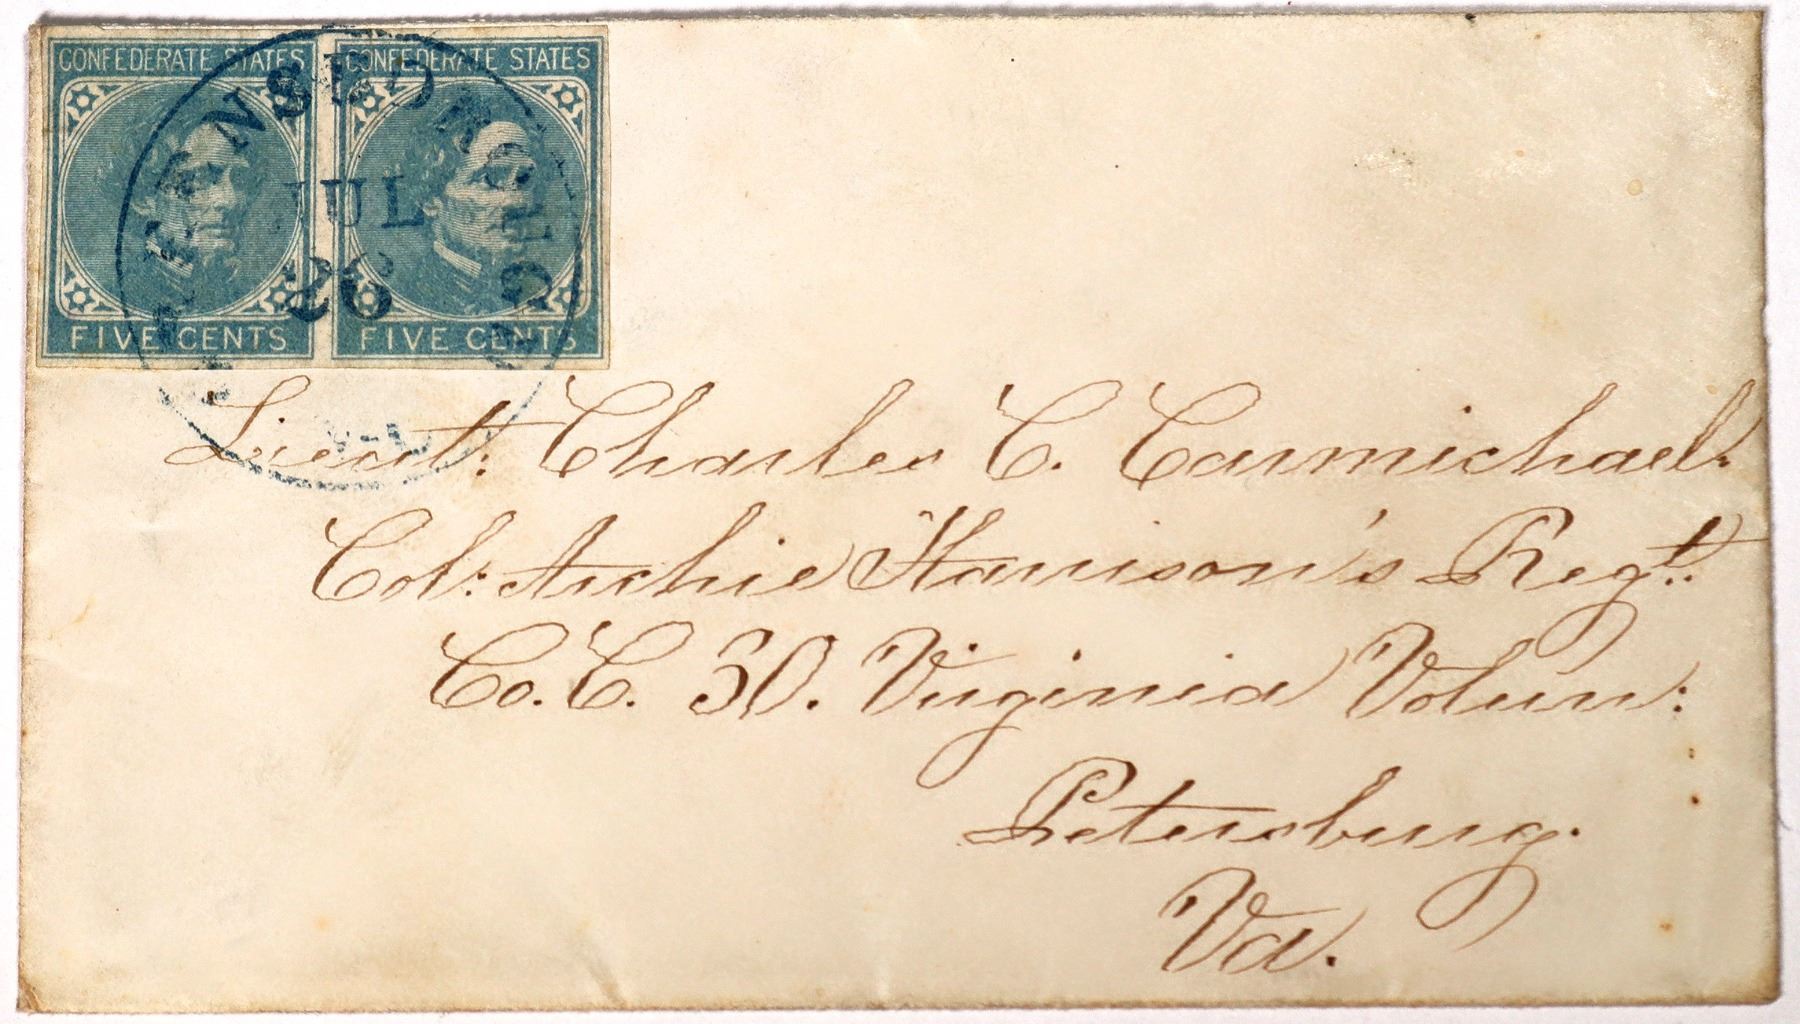 CONFEDERATE STATES CONFEDERATE STATES
JUL
26
FIVE CENTS FIVE CENTS
Lieut: Charles C. Carmichael.
Col: Archie Harrison's Regt:
Co. C. 30. Virginia Volun:
Petersburg.
Va.